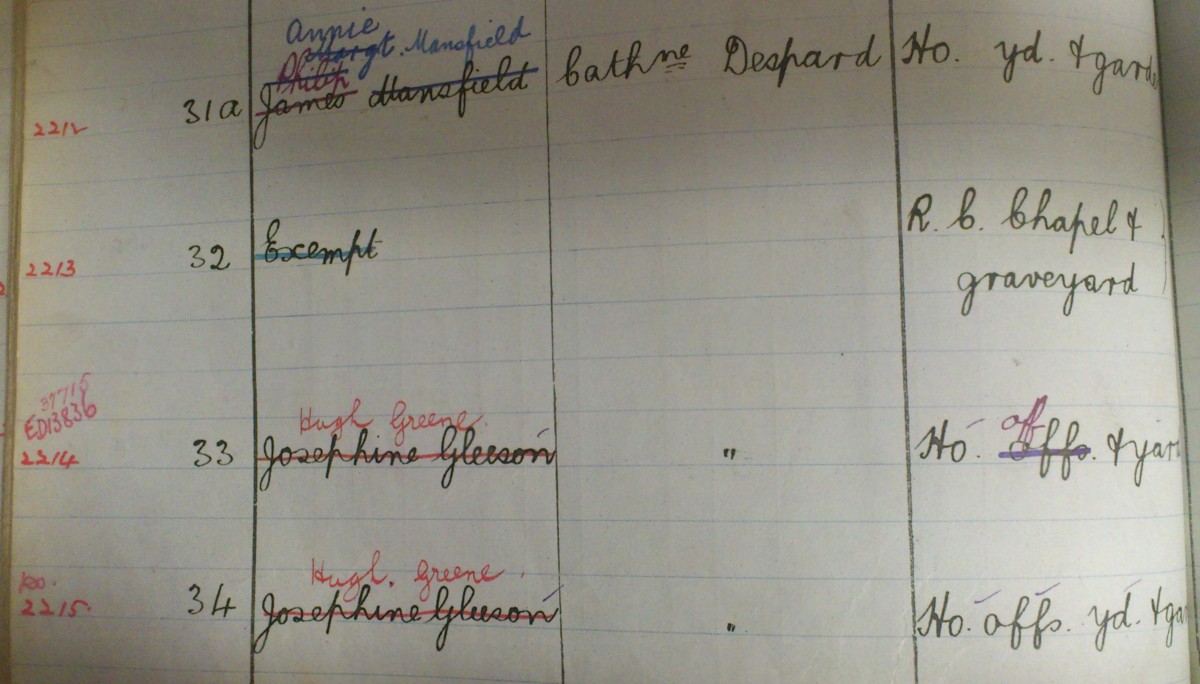 Annie
Margt. Mansfield
Philip
31a James Mansfield Cathne Despard Ho. yd. & gard
2212
R. C. Chapel &
32 Exempt graveyard
2213
37715
ED13836
Hugh Greene off
2214 33 Josephine Gleeson " Ho. offs. & yar
Hugh. Greene.
34 Josephine Gleeson " Ho. offs. yd. & ga
2215.